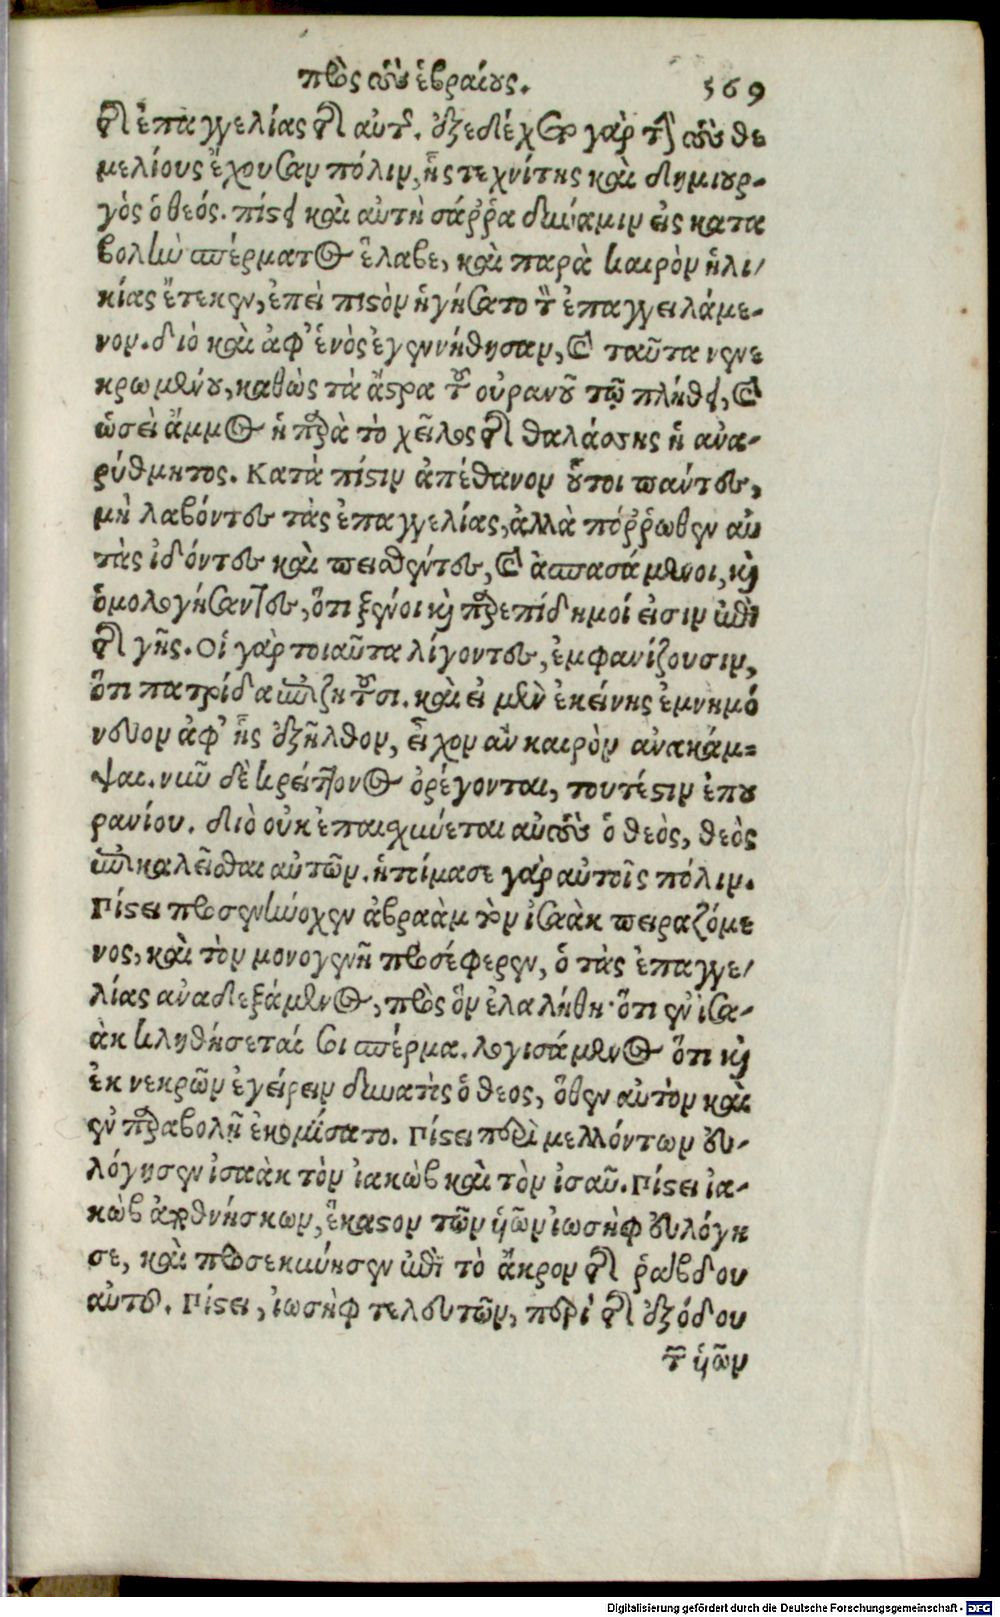 πρὸς τοὺς ἑβραίους. 569
τῆς ἐπαγγελίας τῆς αὐτῆς. ἐξεδέχετο γὰρ τὴν τοὺς θε
μελίους ἔχουσαν πόλιν, ἧς τεχνίτης καὶ δημιουρ-
γὸς ὁ θεός. πίστει καὶ αὐτὴ σάῤῥα δύναμιν εἰς κατα
βολὴν σπέρματος ἔλαβε, καὶ παρὰ καιρὸν ἡλι/
κίας ἔτεκεν, ἐπεὶ πιστὸν ἡγήσατο τὸν ἐπαγγειλάμε-
νον. διὸ καὶ ἀφ' ἑνὸς ἐγεννήθησαν, καὶ ταῦτα νενε
κρωμένου, καθὼς τὰ ἄστρα τοῦ οὐρανοῦ τῷ πλήθει, καὶ
ὡσεὶ ἄμμος ἡ παρὰ τὸ χεῖλος τῆς θαλάσσης ἡ ἀνα-
ρύθμητος. Κατὰ πίστιν ἀπέθανον οὗτοι πάντες,
μὴ λαβόντες τὰς ἐπαγγελίας, ἀλλὰ πόῤῥωθεν αὐ
τὰς ἰδόντες καὶ πεισθέντες, καὶ ἀσπασάμενοι, καὶ
ὁμολογήσαντες, ὅτι ξένοι καὶ παρεπίδημοί εἰσιν ἐπὶ
τῆς γῆς. Οἱ γὰρ τοιαῦτα λέγοντες, ἐμφανίζουσιν,
ὅτι πατρίδα ἐπιζητοῦσι. καὶ εἰ μὲν ἐκείνης ἐμνημό
νευον ἀφ' ἧς ἐξῆλθον, εἶχον ἂν καιρὸν ἀνακάμ=
ψαι. νῦν δὲ κρείττονος ὀρέγονται, τουτέστιν ἐπου
ρανίου. διὸ οὐκ ἐπαισχύνεται αὐτοὺς ὁ θεὸς, θεὸς
ἐπικαλεῖσθαι αὐτῶν. ἡτίμασε γὰρ αὐτοῖς πόλιν.
Πίστει προσενήνοχεν ἀβραὰμ τὸν ἰσαὰκ πειραζόμε
νος, καὶ τὸν μονογενῆ προσέφερεν, ὁ τὰς ἐπαγγε/
λίας ἀναδεξάμενος, πρὸς ὃν ἐλαλήθη· ὅτι ἐν ἰσα-
ὰκ κληθήσεταί σοι σπέρμα. λογισάμενος ὅτι καὶ
ἐκ νεκρῶν ἐγείρειν δυνατὸς ὁ θεος, ὅθεν αὐτὸν καὶ
ἐν παραβολῆ ἐκομίσατο. Πίστει περὶ μελλόντων εὐ-
λόγησεν ἰσαὰκ τὸν ἰακὼβ καὶ τὸν ἰσαῦ. Πίστει ἰα-
κὼβ ἀποθνήσκων, ἕκαστον τῶν ὑῶν ἰωσὴφ εὐλόγη
σε, καὶ προσεκύνησεν ἐπὶ τὸ ἄκρον τῆς ῥάβδου
αὐτοῦ. Πίστει, ἰωσὴφ τελευτῶν, περὶ τῆς ἐξόδου
τῶν ὑῶν